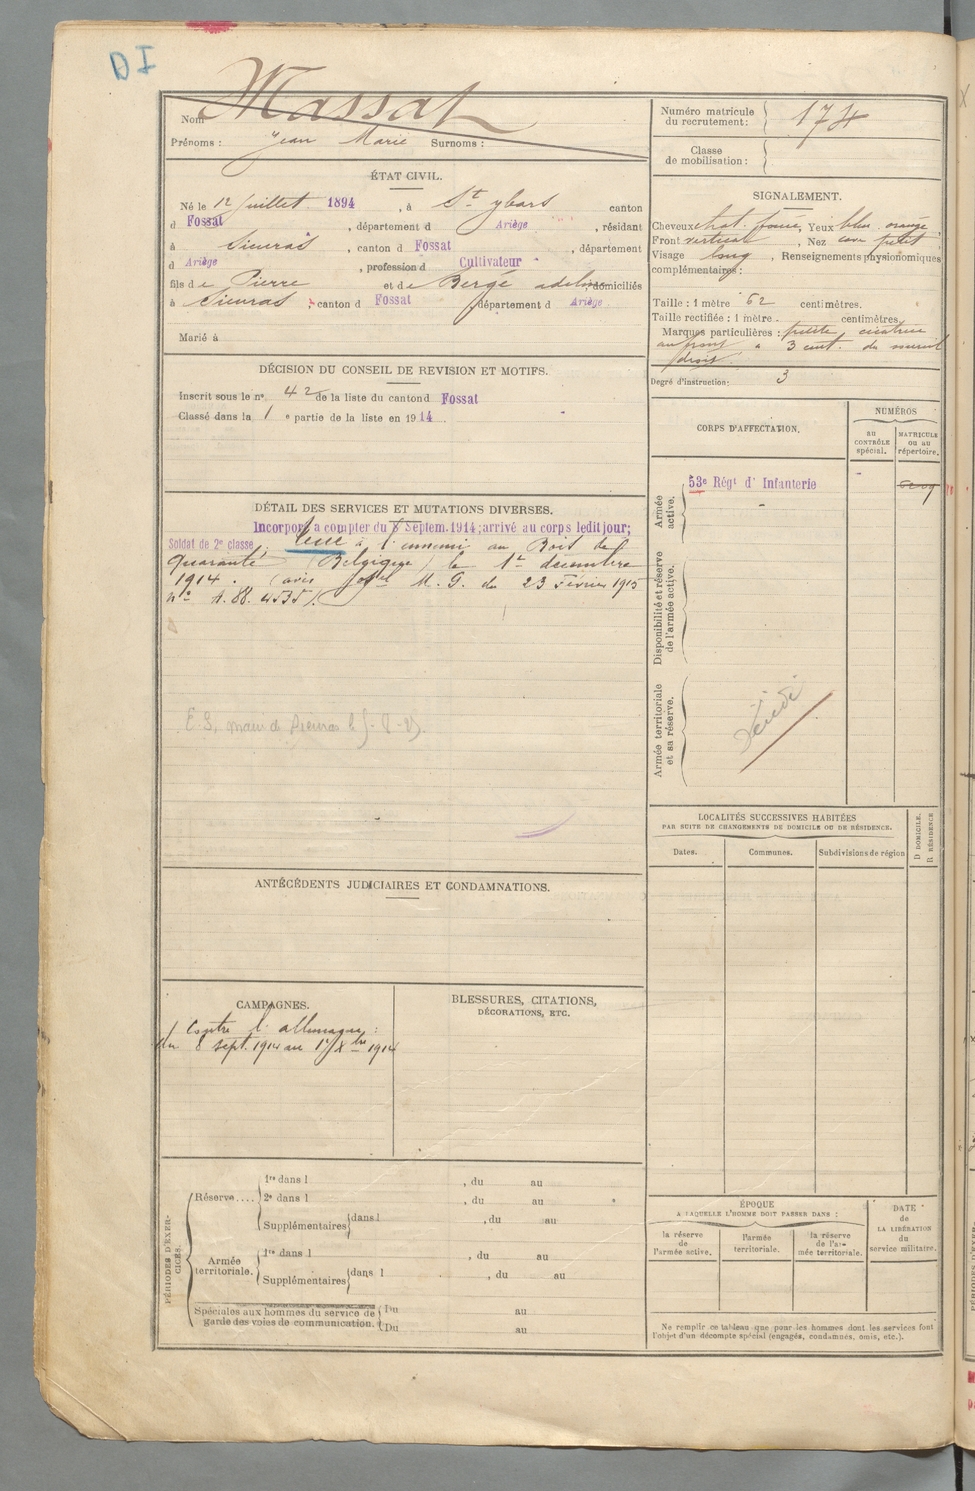 DI
Nom Massat
Prénoms : Jean Marie Surnoms :
ÉTAT CIVIL.
Né le 12 Juillet 1894, à St ybars canton
d Fossat, département d Ariège, résidant
à Sieuras, canton d Fossat, département
d Ariège, profession d Cultivateur
fils de Pierre et de Bergé adeline, domiciliés
à Sieuras, canton d Fossat département d Ariège.
Marié à
DÉCISION DU CONSEIL DE REVISION ET MOTIFS.
Inscrit sous le n° 42 de la liste du canton d Fossat
Classé dans la 1 e partie de la liste en 1914.
DÉTAIL DES SERVICES ET MUTATIONS DIVERSES.
Incorporé à compter du 8 Septem. 1914; arrivé au corps ledit jour;
Soldat de 2e classe. tué à l'ennemi au Bois de
Quarante (Belgique) le 1er décembre
1914. (avis M. G. du 23 Février 1915
n°
E. S. mairie de Sieuras le
ANTÉCÉDENTS JUDICIAIRES ET CONDAMNATIONS.
CAMPAGNES.
Contre l'allemagne :
du 8 sept. 1914 au 1er Xbre 1914
BLESSURES, CITATIONS,
DÉCORATIONS, ETC.
PÉRIODES D'EXERCICES.
Réserve....
1re dans l , du au
2e dans l , du au
Supplémentaires dans l , du au
Armée territoriale.
1re dans l , du au
Supplémentaires dans l , du au
Spéciales aux hommes du service de
garde des voies de communication.
Du au
Du au
Numéro matricule
du recrutement: 174
Classe
de mobilisation :
SIGNALEMENT.
Cheveux chat. foncé, Yeux bleu orangé,
Front vertical, Nez cave petit,
Visage long, Renseignements physionomiques
complémentaires :
Taille : 1 mètre 62 centimètres.
Taille rectifiée : 1 mètre. centimètres.
Marques particulières : petite cicatrice
au front à 3 cent. du sourcil
droit.
Degré d'instruction: 3
CORPS D'AFFECTATION,
NUMÉROS
AU CONTRÔLE spécial.
MATRICULE ou au répertoire.
Armée active.
53e Régt d' Infanterie
Disponibilité et réserve de l'armée active.
Armée territoriale et sa réserve.
LOCALITÉS SUCCESSIVES HABITÉES
PAR SUITE DE CHANGEMENTS DE DOMICILE OU DE RÉSIDENCE.
D DOMICILE.
R RÉSIDENCE
Dates.
Communes.
Subdivisions de région
ÉPOQUE
A LAQUELLE L'HOMME DOIT PASSER DANS :
la réserve de l'armée active.
l'armée territoriale.
la réserve de l'armée territoriale.
DATE
de
LA LIBÉRATION
du
service militaire.
Ne remplir ce tableau que pour les hommes dont les services font
l'objet d'un décompte spécial (engagés, condamnés, omis, etc.).